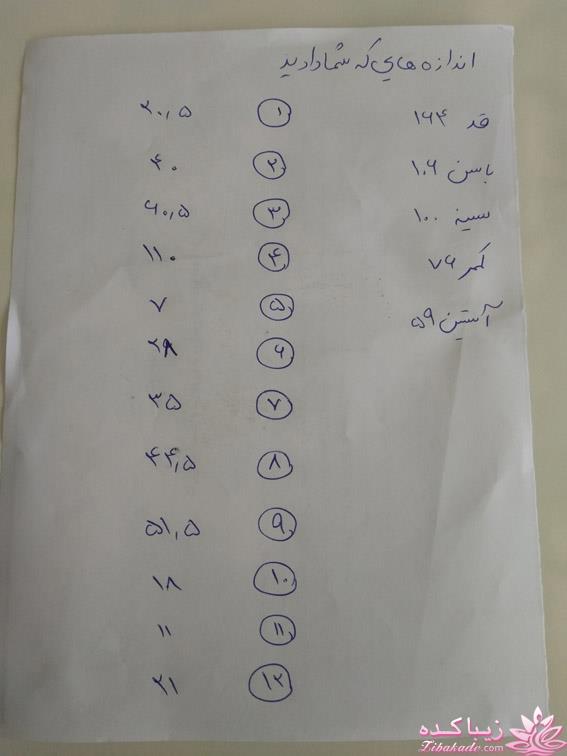 اندازه هایی که شما دادید
قد ۱۶۴ ۱ ۲۰,۵
باسن ۱۰۶ ۲ ۴۰
سینه ۱۰۰ ۳ ۶۰,۵
کمر ۷۶ ۴ ۱۱۰
آستین ۵۹ ۵ ۷
۶ ۲۸
۷ ۳۵
۸ ۴۴,۵
۹ ۵۱,۵
۱۰ ۱۸
۱۱ ۱۱
۱۲ ۲۱
زیباکده
Zibakade.com